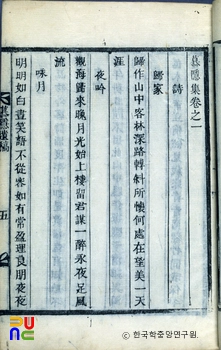 慕隱集卷之一
詩
歸家
歸作山中客林深路轉斜所懷何處在望美一天
涯
夜吟
觀海歸來晚月光始上樓留君謀一醉永夜足風
流
咏月
明明如白晝笑語不從容如有常盈理良朋夜夜
五
PUNC
© 한국학중앙연구원